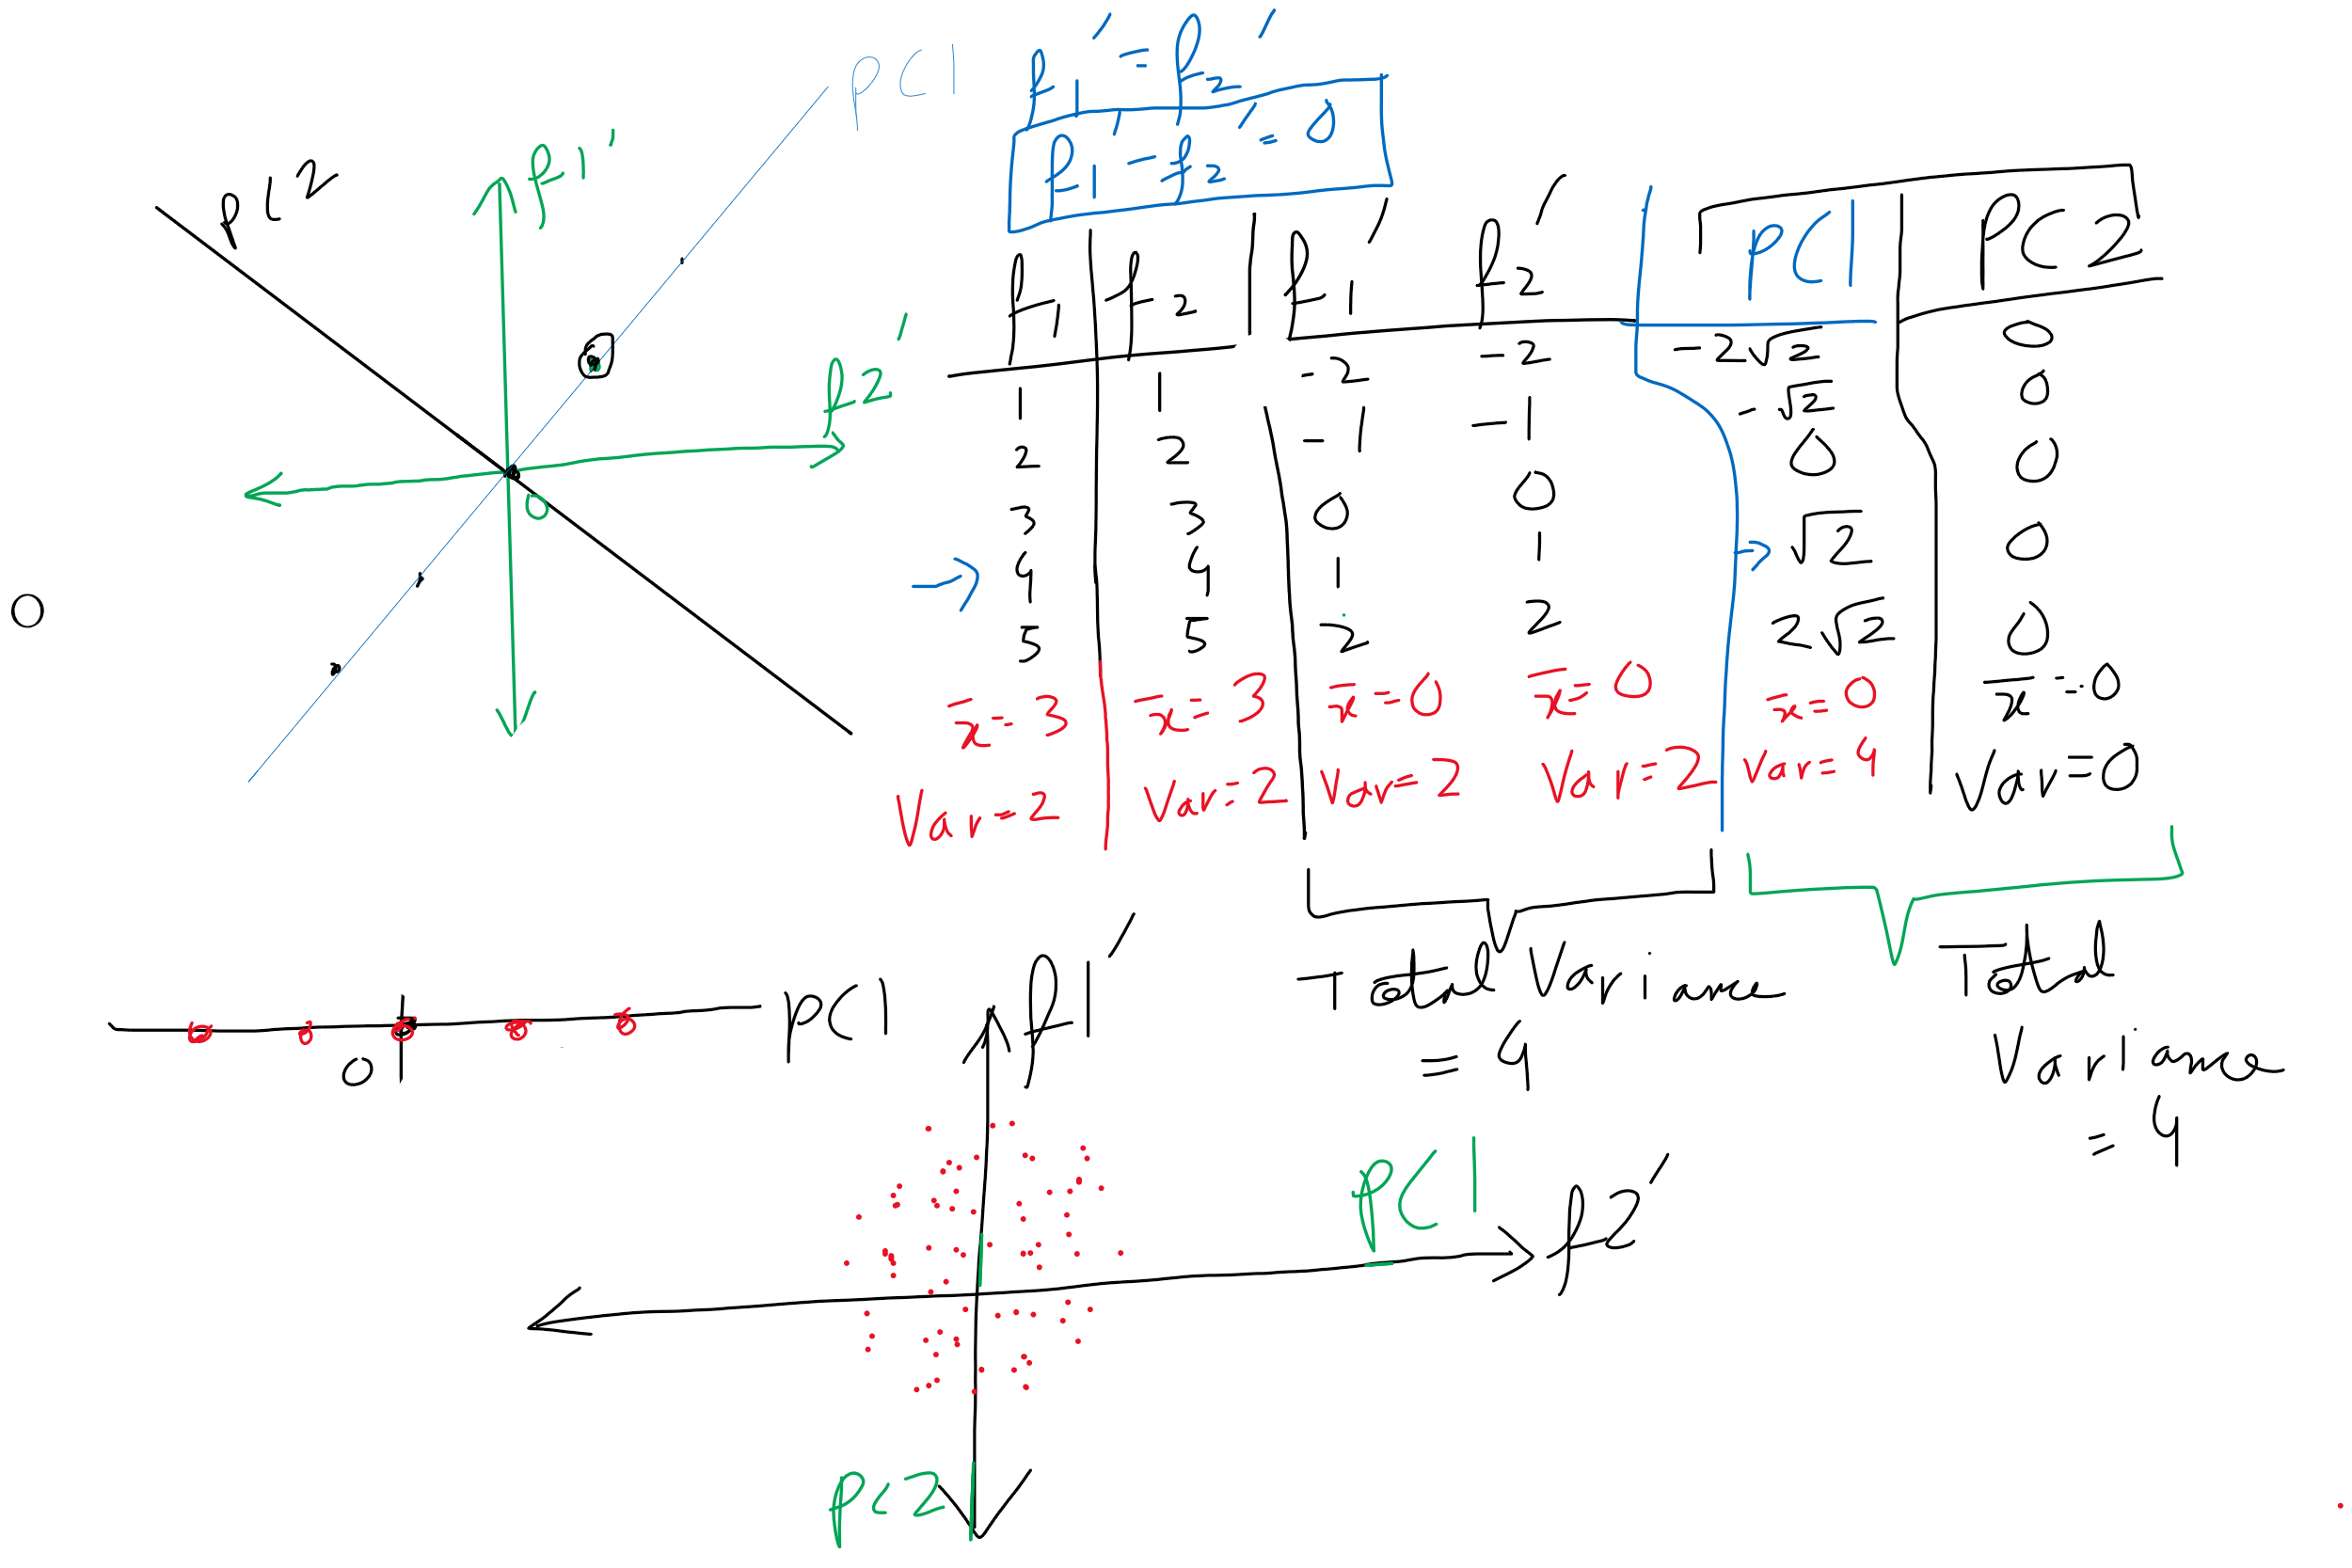 f1' = f2'
f1' - f2' = 0
PC1
PC2
f1'
f2'
0
0
f1 f2 f1' f2' PC1 PC2
1 1 -2 -2 -2√2 0
2 2 -1 -1 -√2 0
3 3 0 0 0 0
4 4 1 1 √2 0
5 5 2 2 2√2 0
x̄ = 3 x̄ = 3 x̄ = 0 x̄ = 0 x̄ = 0 x̄ = 0
Var = 2 Var = 2 Var = 2 Var = 2 Var = 4 Var = 0
Total Variance
= 4
Total
Variance
= 4
PC1
0
f1'
PC1
f2'
PC2